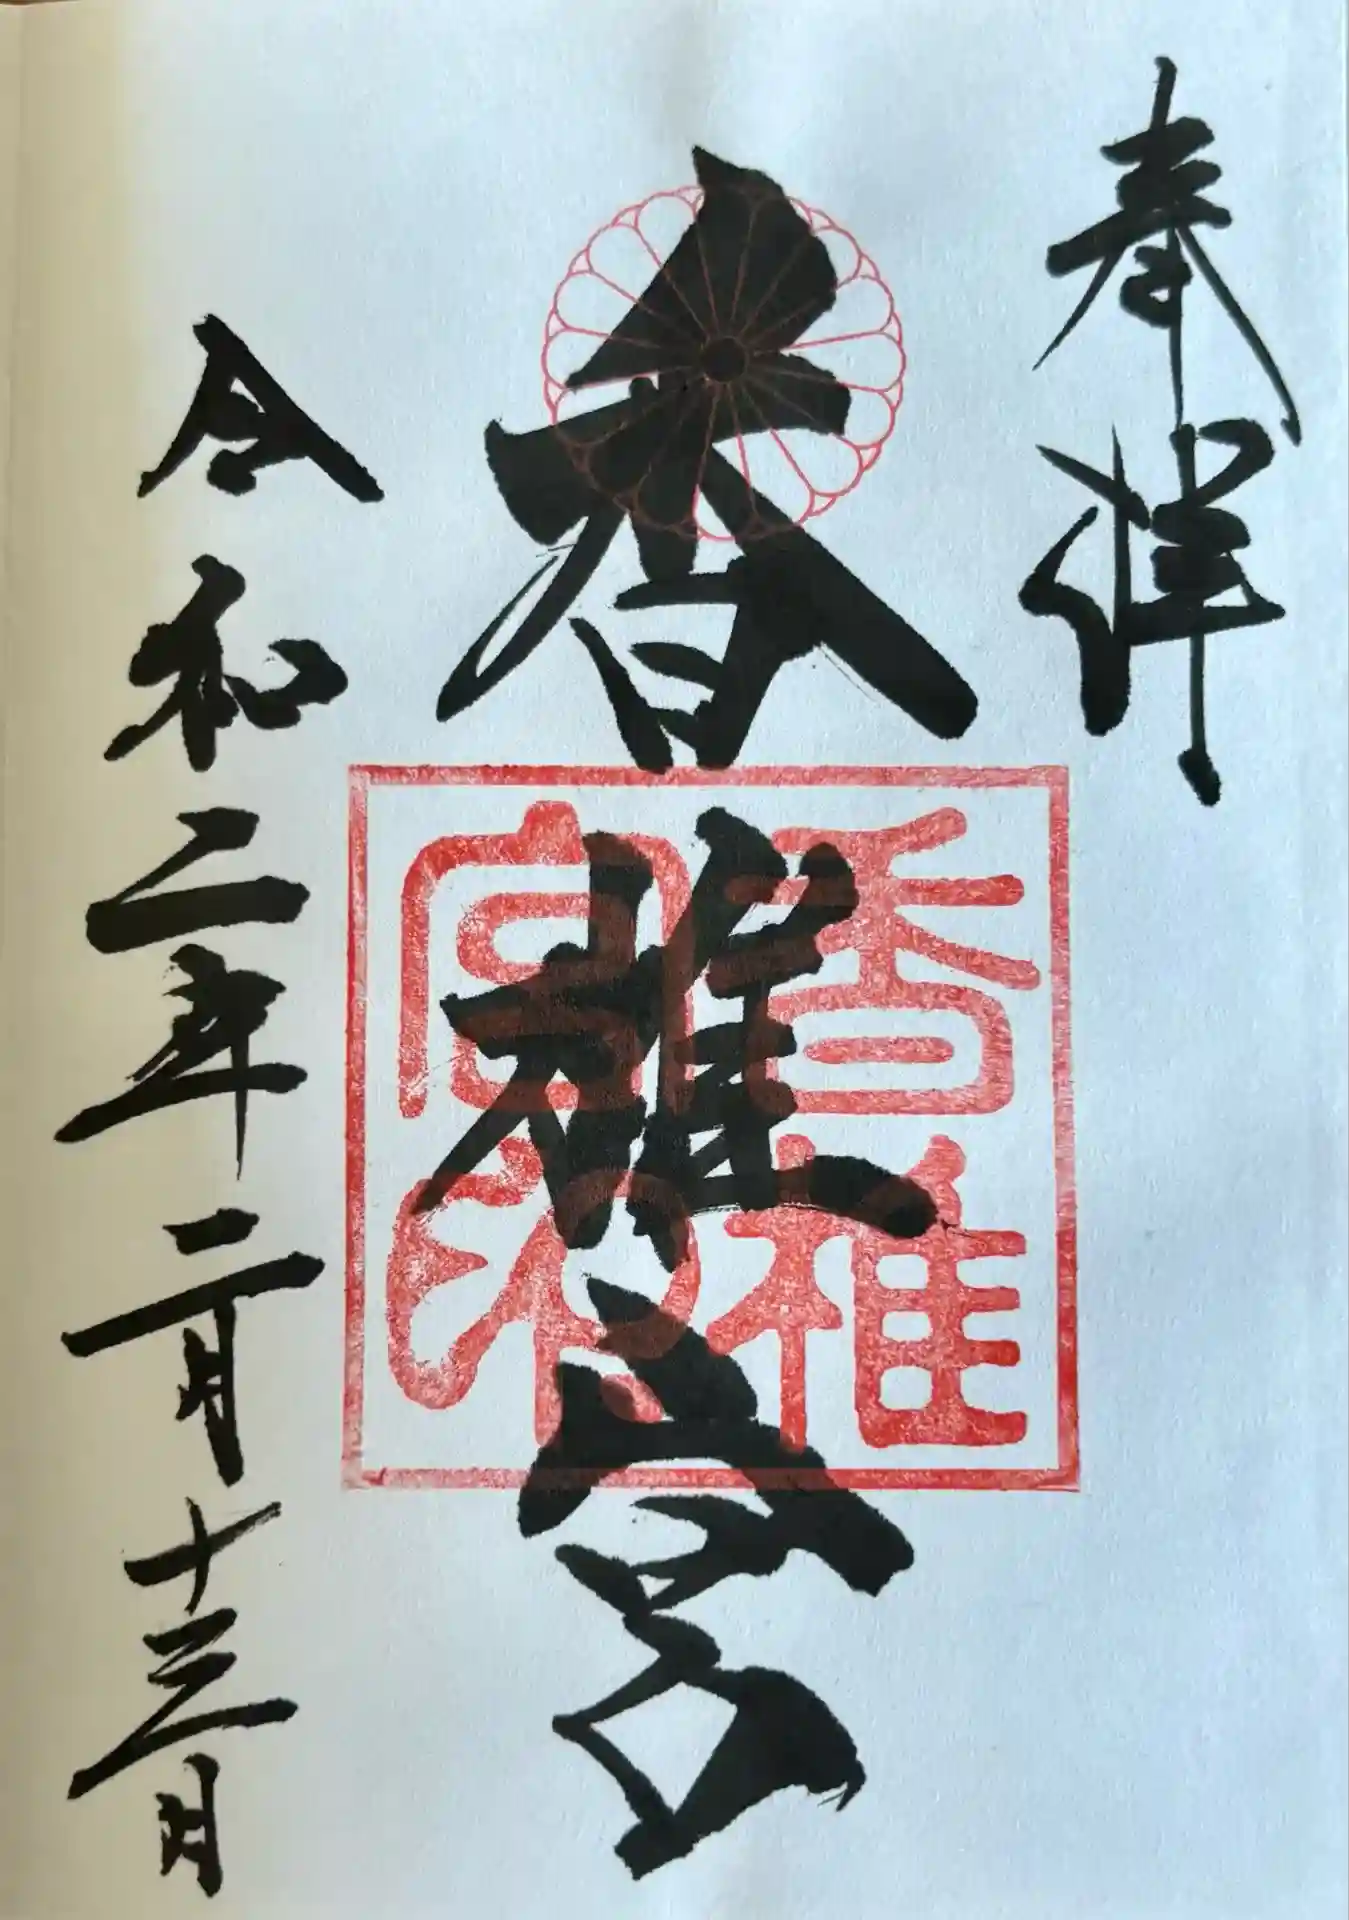 奉拝
香椎宮
香椎宮印
令和二年二月十三日